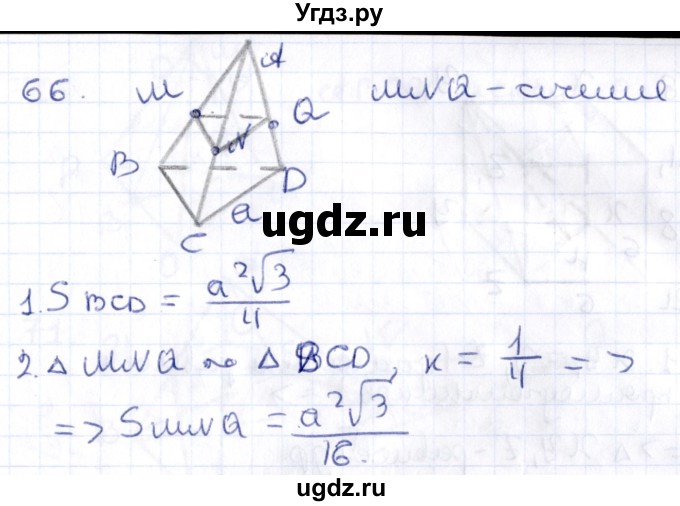 Угдз.ру
66.
A
M
Q
N
B
D
C
a
MNQ – сечение
ugdz.ru
1. S BCD = a²√3/4
2. △ MNQ ~ △ BCD, k = 1/4 =>
=> S MNQ = a²√3/16.
ugdz.ru